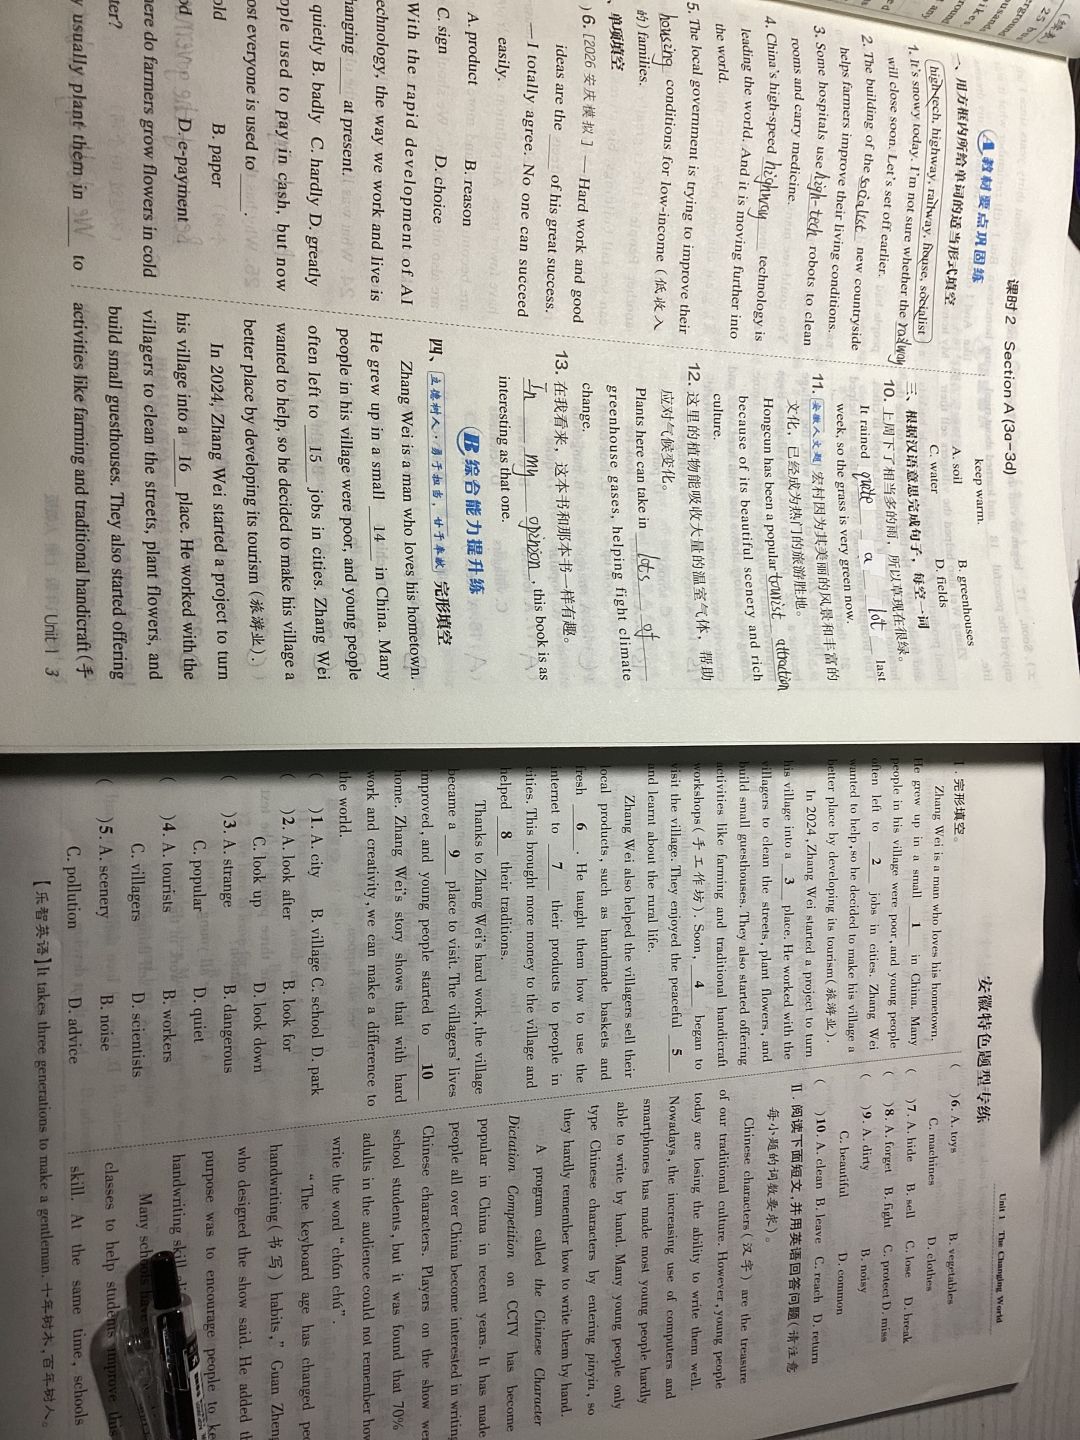 课时2 Section A (3a-3d)
A 教材要点巩固练
一、用方框内所给单词的适当形式填空
high-tech, highway, railway, house, socialist
1. It's snowy today. I'm not sure whether the railway
will close soon. Let's set off earlier.
2. The building of the socialist new countryside
helps farmers improve their living conditions.
3. Some hospitals use high-tech robots to clean
rooms and carry medicine.
4. China's high-speed highway technology is
leading the world. And it is moving further into
the world.
5. The local government is trying to improve their
housing conditions for low-income (低收入
的) families.
二、单项填空
)6. [2026 安庆模拟] — Hard work and good
ideas are the ___ of his great success.
— I totally agree. No one can succeed
easily.
A. product B. reason
C. sign D. choice
With the rapid development of AI
technology, the way we work and live is
changing ___ at present.
quietly B. badly C. hardly D. greatly
people used to pay in cash, but now
most everyone is used to ___.
old B. paper
D. e-payment
here do farmers grow flowers in cold
ter?
y usually plant them in ___ to
keep warm.
A. soil B. greenhouses
C. water D. fields
三、根据汉语意思完成句子，每空一词
10. 上周下了相当多的雨，所以草现在很绿。
It rained quite a lot last
week, so the grass is very green now.
11. 安徽人文题 宏村因为其美丽的风景和丰富的
文化，已经成为热门的旅游胜地。
Hongcun has been a popular tourist attraction
because of its beautiful scenery and rich
culture.
12. 这里的植物能吸收大量的温室气体，帮助
应对气候变化。
Plants here can take in lots of
greenhouse gases, helping fight climate
change.
13. 在我看来，这本书和那本书一样有趣。
In my opinion, this book is as
interesting as that one.
B 综合能力提升练
四、立德树人·勇于担当，甘于奉献 完形填空
Zhang Wei is a man who loves his hometown.
He grew up in a small 14 in China. Many
people in his village were poor, and young people
often left to 15 jobs in cities. Zhang Wei
wanted to help, so he decided to make his village a
better place by developing its tourism (旅游业).
In 2024, Zhang Wei started a project to turn
his village into a 16 place. He worked with the
villagers to clean the streets, plant flowers, and
build small guesthouses. They also started offering
activities like farming and traditional handicraft (手
Unit 1 3
Unit 1 The Changing World
安徽特色题型专练
Ⅰ. 完形填空。
Zhang Wei is a man who loves his hometown.
He grew up in a small 1 in China. Many
people in his village were poor, and young people
often left to 2 jobs in cities. Zhang Wei
wanted to help, so he decided to make his village a
better place by developing its tourism(旅游业).
In 2024, Zhang Wei started a project to turn
his village into a 3 place. He worked with the
villagers to clean the streets, plant flowers, and
build small guesthouses. They also started offering
activities like farming and traditional handicraft
workshops(手工作坊). Soon, 4 began to
visit the village. They enjoyed the peaceful 5
and learnt about the rural life.
Zhang Wei also helped the villagers sell their
local products, such as handmade baskets and
fresh 6 . He taught them how to use the
internet to 7 their products to people in
cities. This brought more money to the village and
helped 8 their traditions.
Thanks to Zhang Wei's hard work, the village
became a 9 place to visit. The villagers' lives
improved, and young people started to 10
home. Zhang Wei's story shows that with hard
work and creativity, we can make a difference to
the world.
( )1. A. city B. village C. school D. park
( )2. A. look after B. look for
C. look up D. look down
( )3. A. strange B. dangerous
C. popular D. quiet
( )4. A. tourists B. workers
C. villagers D. scientists
( )5. A. scenery B. noise
C. pollution D. advice
( )6. A. toys B. vegetables
C. machines D. clothes
( )7. A. hide B. sell C. lose D. break
( )8. A. forget B. fight C. protect D. miss
( )9. A. dirty B. noisy
C. beautiful D. common
( )10. A. clean B. leave C. reach D. return
Ⅱ. 阅读下面短文，并用英语回答问题(请注意
每小题的词数要求)。
Chinese characters(汉字) are the treasure
of our traditional culture. However, young people
today are losing the ability to write them well.
Nowadays, the increasing use of computers and
smartphones has made most young people hardly
able to write by hand. Many young people only
type Chinese characters by entering pinyin, so
they hardly remember how to write them by hand.
A program called the Chinese Character
Dictation Competition on CCTV has become
popular in China in recent years. It has made
people all over China become interested in writing
Chinese characters. Players on the show were
school students, but it was found that 70%
adults in the audience could not remember how
write the word "chán chú".
"The keyboard age has changed
handwriting(书写) habits," Guan Zheng
who designed the show said. He added
purpose was to encourage people to
handwriting
Many schools have
classes to help students improve this
skill. At the same time, schools
【乐智英语】It takes three generations to make a gentleman. 十年树木，百年树人。